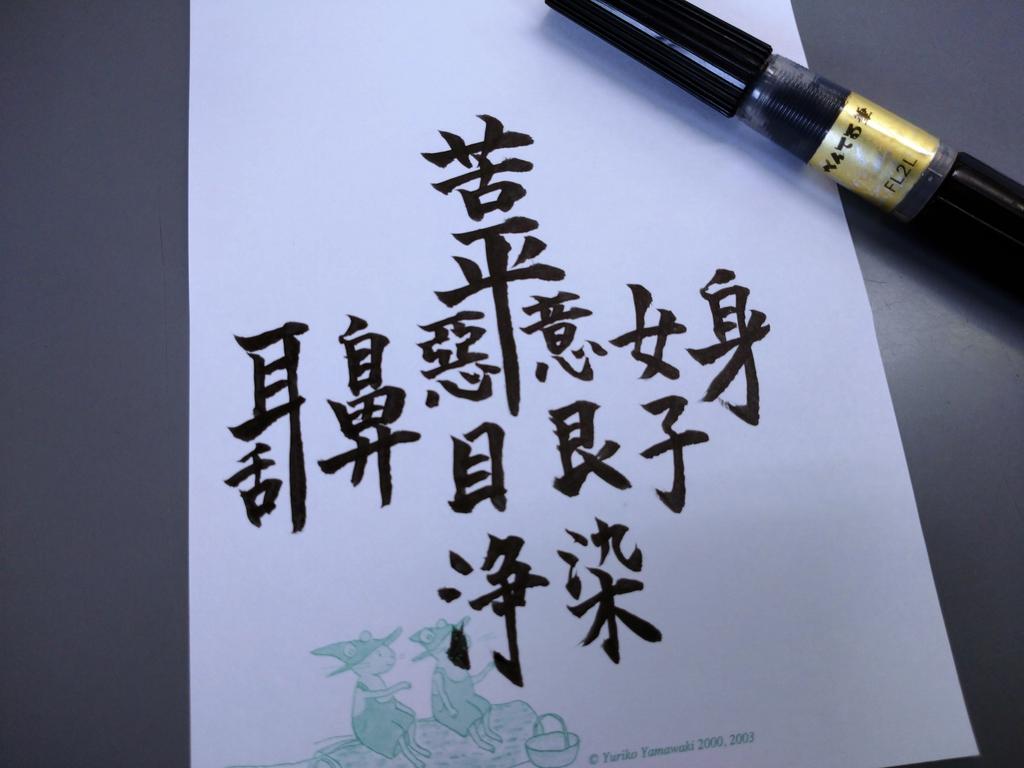 苦
平
惡 意 女 身
耳 鼻
舌 目 艮 子
浄 染
ぺんてる筆
FL2L
© Yuriko Yamawaki 2000, 2003